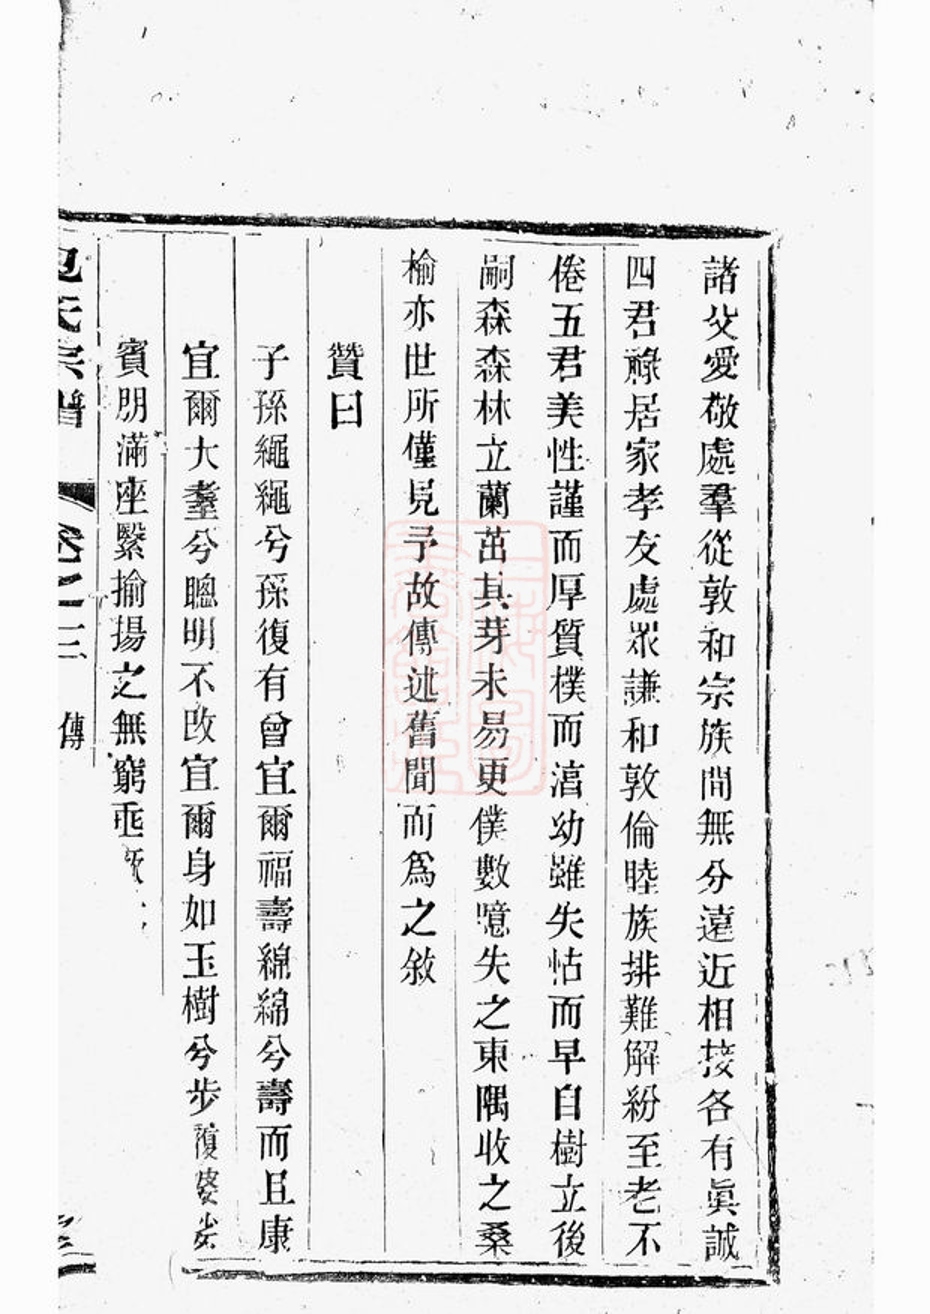 諸父愛敬處羣從敦和宗族間無分遠近相接各有眞誠
四君祿居家孝友處眾謙和敦倫睦族排難解紛至老不
倦五君美性謹而厚質樸而湻幼雖失怙而早自樹立後
嗣森森林立蘭茁其芽未易更僕數噫失之東隅收之桑
榆亦世所僅見予故傳述舊聞而爲之敘
贊曰
子孫繩繩兮孫復有曾宜爾福壽綿綿兮壽而且康
宜爾大耋兮聰明不改宜爾身如玉樹兮步履婆娑
賓朋滿座繄揄揚之無窮垂
包氏宗譜 卷之三 傳